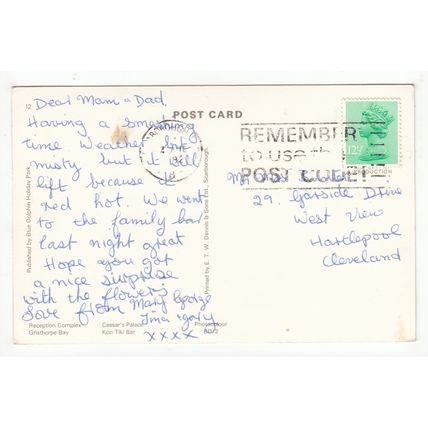 12
Dear Mam & Dad.
Having a smashing
time. Weather bit
misty but it will
lift because it
red hot. We went
to the family bar
last night great
Hope you got
a nice surprise
with the flowers
Love from Mary George
Tina & Gary
xxxx
POST CARD
REMEMBER
to use the
POST CODE
12½
29. Garside Drive
West View
Hartlepool
Cleveland
Published by Blue Dolphin Holiday Park
Printed by E. T. W. Dennis & Sons Ltd., Scarborough
Reception Complex
Gristhorpe Bay
Caesar's Palace
Kon Tiki Bar